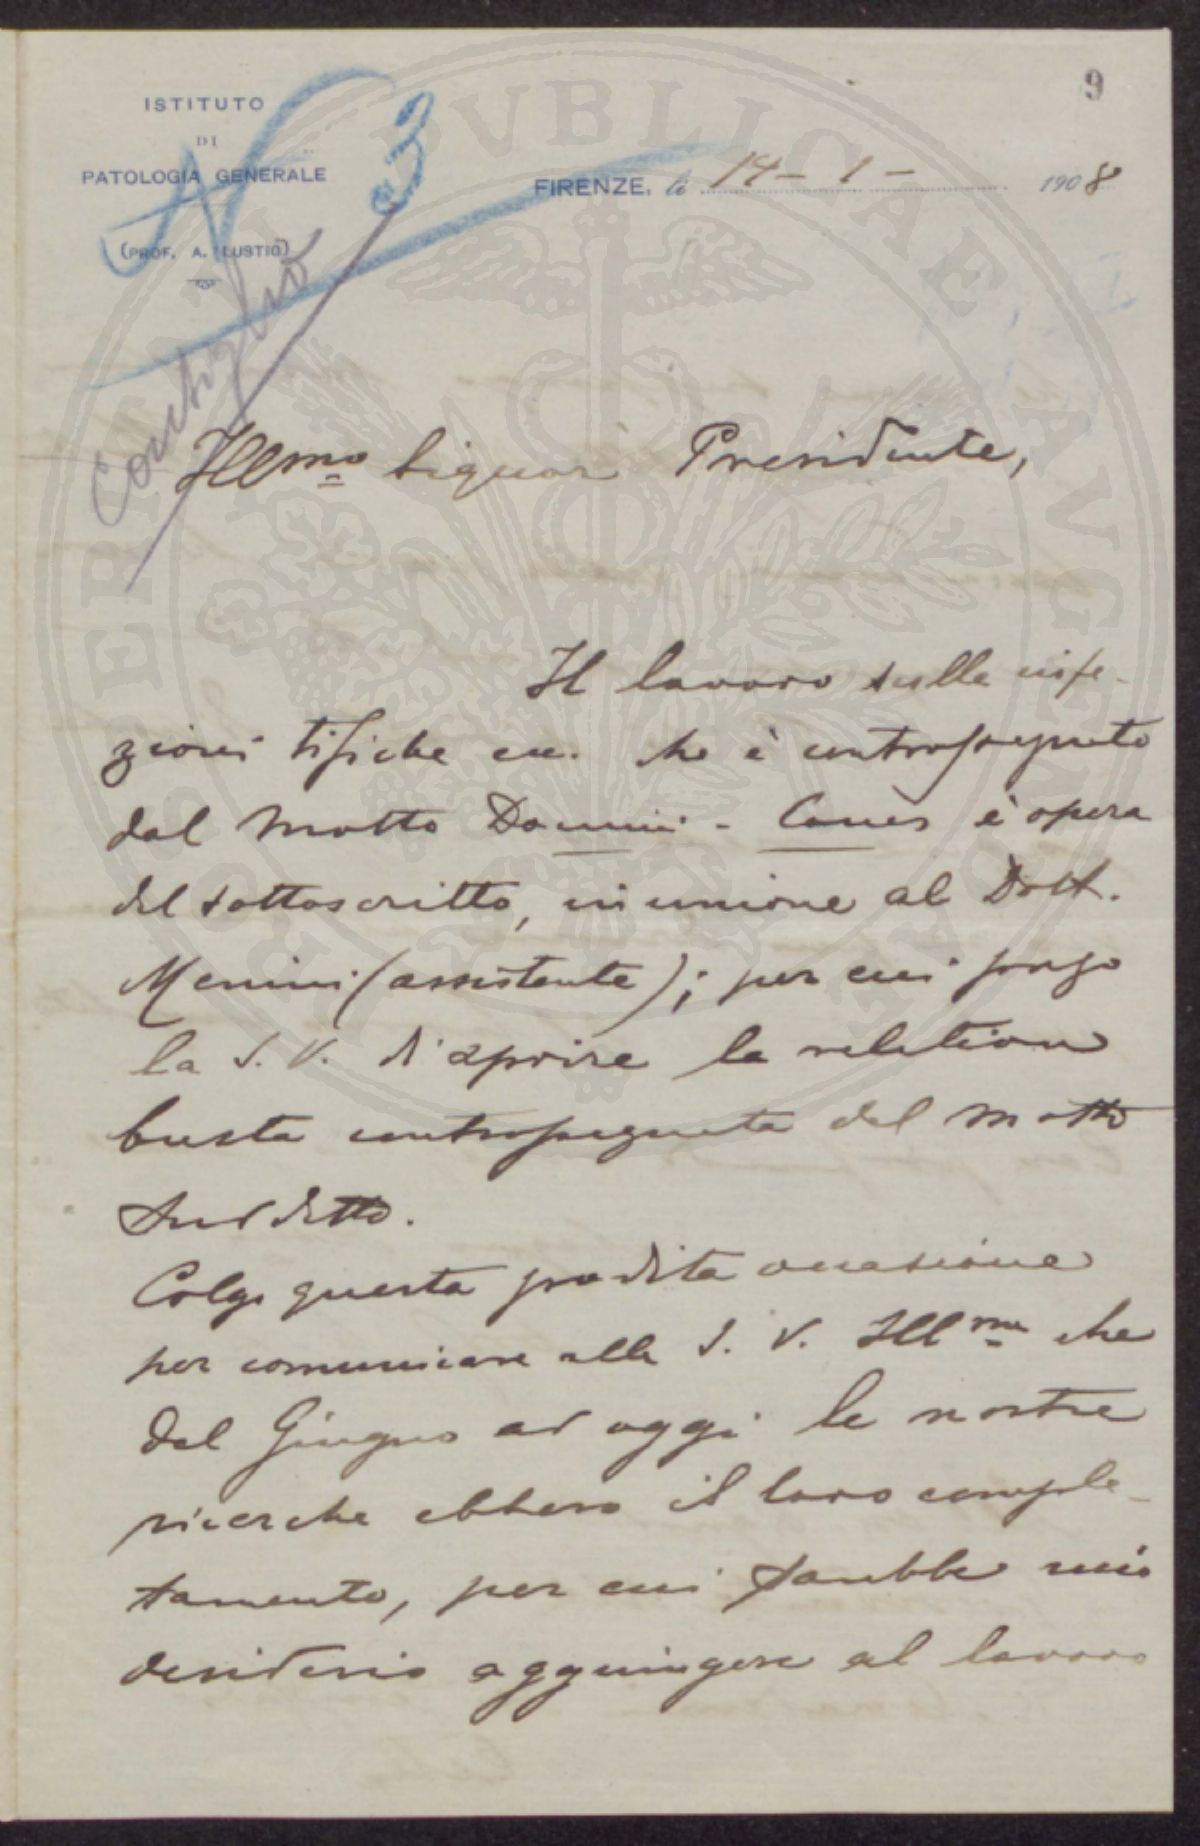 9
ISTITUTO
DI
PATOLOGIA GENERALE
(PROF. A. LUSTIG)
N 3
FIRENZE, le 14 - 1 - 1908
Consiglio
Illmo Signor Presidente,
Il lavoro sulle infe-
zioni tifiche ecc. che è contrassegnato
dal motto Domini - Canes è opera
del sottoscritto, in unione al Dott.
Menini (assistente); per cui prego
la S. V. d'aprire la relativa
busta contrassegnata dal motto
suddetto.
Colgo questa gradita occasione
per comunicare alla S. V. Illma che
dal Giugno ad oggi le nostre
ricerche ebbero il loro comple-
tamento, per cui sarebbe mio
desiderio aggiungere al lavoro